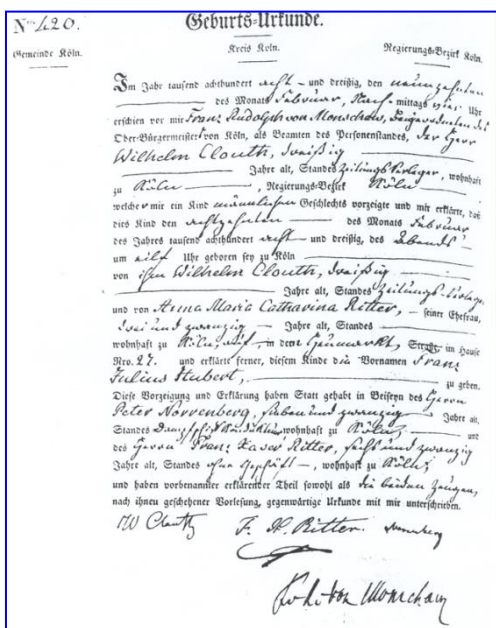 No 420. Geburts-Urkunde.
Gemeinde Köln. Kreis Köln. Regierungs-Bezirk Köln.
Im Jahr tausend achthundert acht – und dreißig, den neunzehnten
des Monats Februar, Nach-mittags vier Uhr
erschien vor mir Franz Rudolph von Monschaw, Beigeordneten des
Ober-Bürgermeister von Köln, als Beamten des Personenstandes, der Herr
Wilhelm Clouth, dreißig
Jahre alt, Standes Zeitungs-Verleger, wohnhaft
zu Köln, Regierungs-Bezirk Köln
welcher mir ein Kind männlichen Geschlechts vorzeigte und mir erklärte, daß
dies Kind den achtzehnten des Monats Februar
des Jahres tausend achthundert acht – und dreißig, des Abends
um eilf Uhr geboren sey zu Köln
von ihm Wilhelm Clouth, dreißig
Jahre alt, Standes Zeitungs-Verleger
und von Anna Maria Catharina Ritter, – seiner Ehefrau,
drei und zwanzig – Jahre alt, Standes
wohnhaft zu Köln, auf dem Heumarkt, Straße, im Hause
Nro. 27. und erklärte ferner, diesem Kinde die Vornamen Franz
Julius Hubert, zu geben.
Diese Vorzeigung und Erklärung haben Statt gehabt in Beiseyn des Herrn
Peter Norrenberg, sieben und zwanzig Jahre alt,
Standes wohnhaft zu Köln, und
des Herrn Franz Xaver Ritter, sechs und zwanzig
Jahre alt, Standes ohne Geschäft –, wohnhaft zu Köln;
und haben vorbenannter erklärender Theil sowohl als die beiden Zeugen,
nach ihnen geschehener Vorlesung, gegenwärtige Urkunde mit mir unterschrieben.
W Clouth F. X. Ritter
von Monschaw